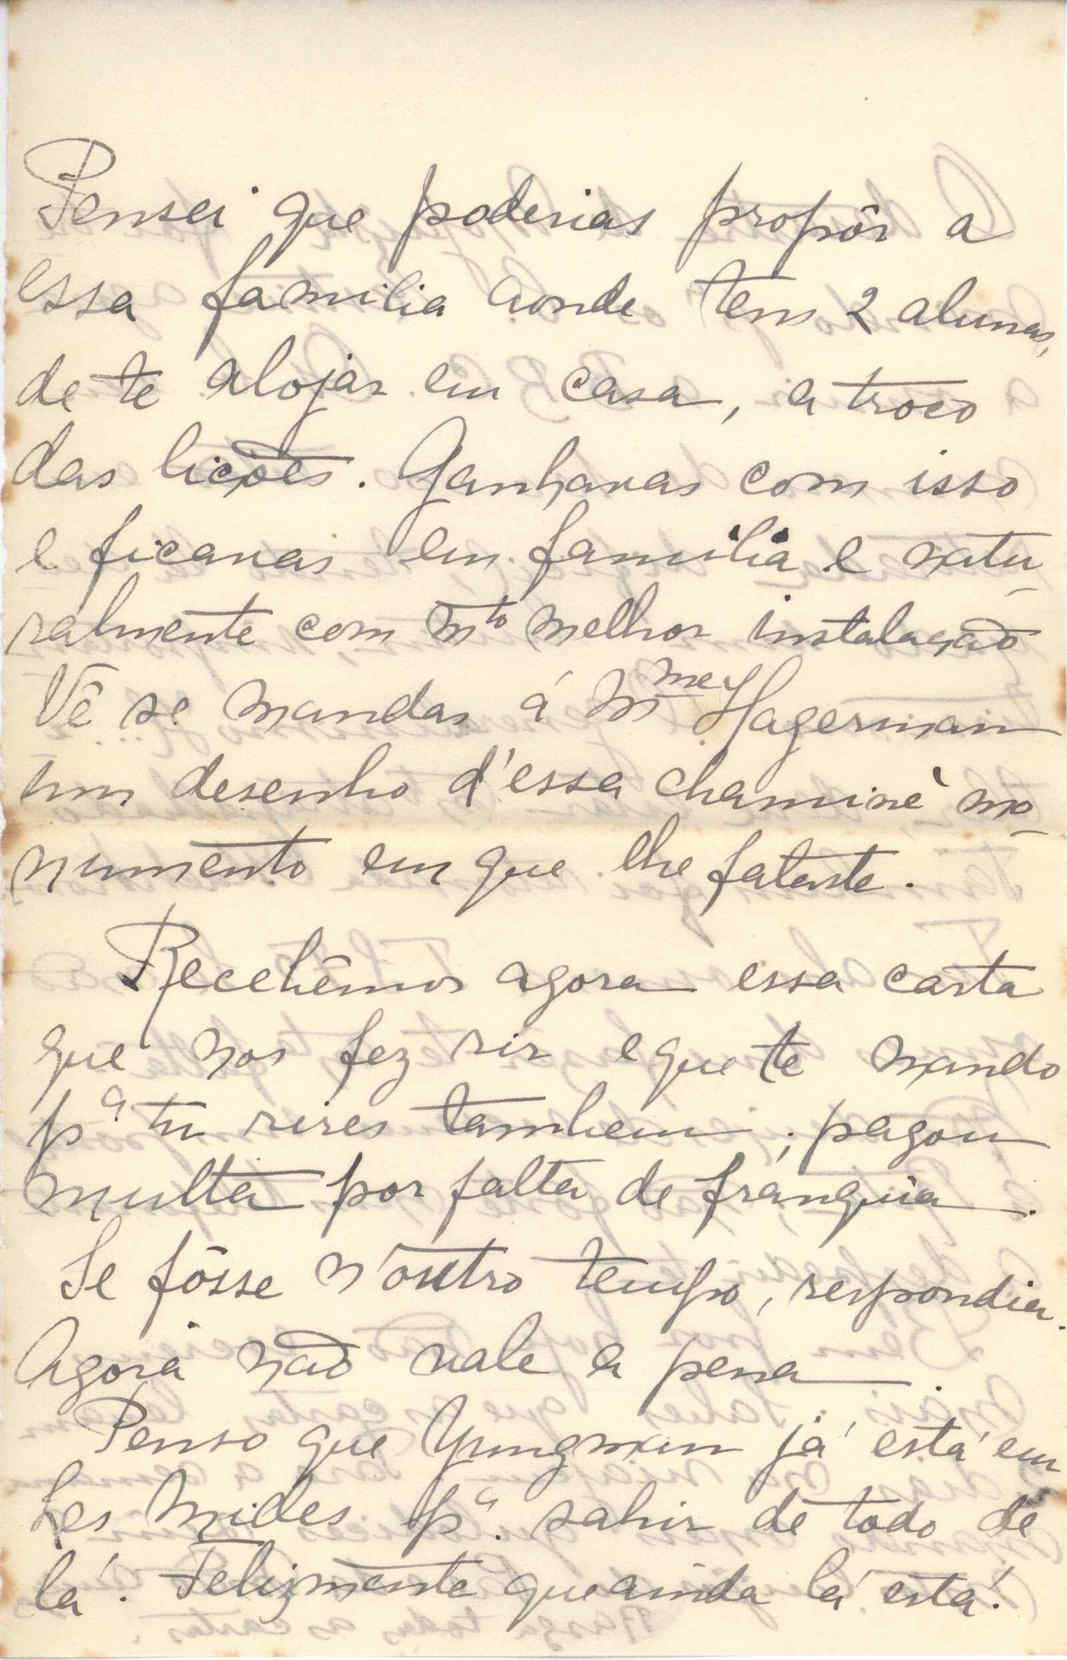 Pensei que poderias propôr a
essa familia aonde tens 2 alunas,
de te alojar em casa, a troco
das lições. Ganhavas com isso
e ficavas em familia e natu-
ralmente com mto melhor instalação
Vê se mandas á Mme Hagerman
um desenho d'essa chaminé mo-
numento em que lhe falaste.
Recebêmos agora essa carta
que nos fez rir e que te mando
pª tu rires tambem; pagou
multa por falta de franquia.
Se fôsse n'outro tempo, respondia.
Agora não vale a pena.
Penso que Yungman já está em
Les Mides pª. sahir de todo de
lá. Felizmente que ainda lá está!